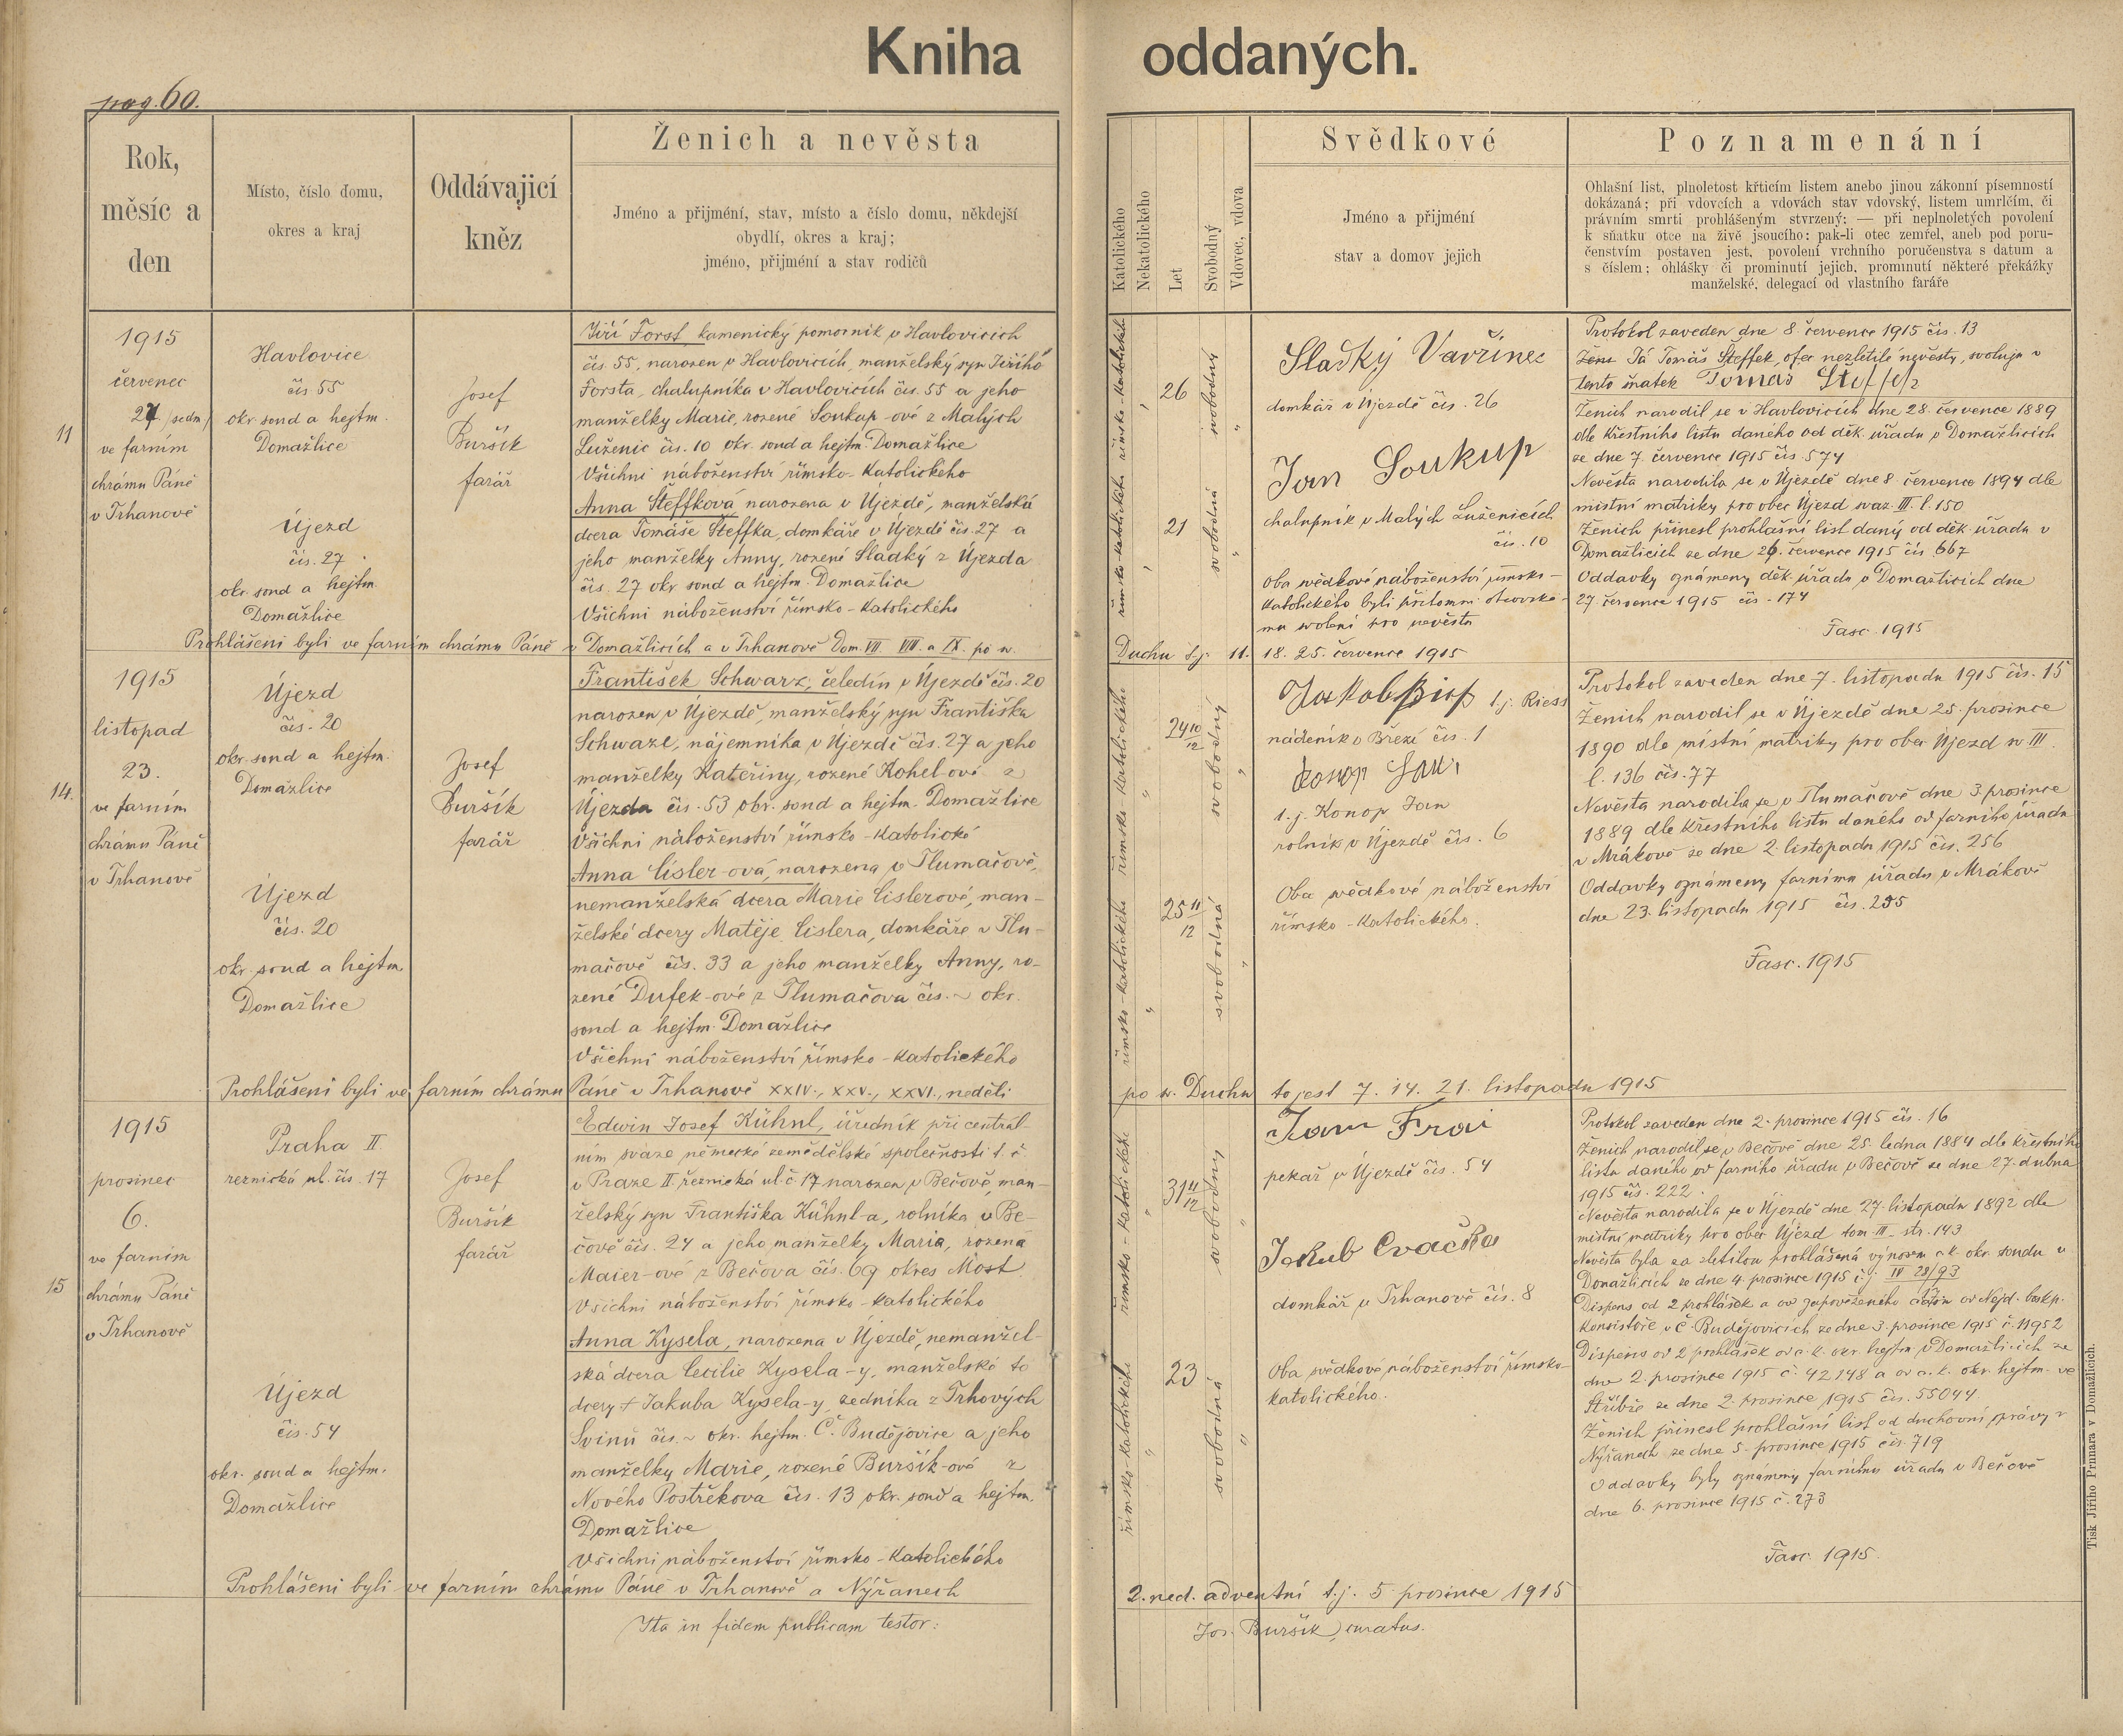 Kniha oddaných.
pag. 60.
Rok,
měsíc a
den
Místo, číslo domu,
okres a kraj
Oddávajicí
kněz
Ženich a nevěsta
Jméno a přijmění, stav, místo a číslo domu, někdejší
obydlí, okres a kraj;
jméno, přijmění a stav rodičů
Katolického
Nekatolického
Let
Svobodný
Vdovec, vdova
Svědkové
Jméno a přijmění
stav a domov jejich
Poznamenání
Ohlašní list, plnoletost křticím listem anebo jinou zákonní písemností
dokázaná; při vdovcích a vdovách stav vdovský, listem umrlčím, či
právním smrti prohlášeným stvrzený; — při neplnoletých povolení
k sňatku otce na živě jsoucího: pak-li otec zemřel, aneb pod poru-
čenstvím postaven jest, povolení vrchního poručenstva s datum a
s číslem; ohlášky či prominutí jejich, prominutí některé překážky
manželské, delegací od vlastního faráře
11
1915
červenec
27 (sedm)
ve farním
chrámu Páně
v Trhanově
Havlovice
čís 55
okr. soud a hejtm.
Domažlice
Újezd
čís. 27
okr. soud a hejtm.
Domažlice
Josef
Buršík
farář
Jiří Forst kamenický pomocník v Havlovicích
čís 55, narozen v Havlovicích, manželský syn Jiřího
Forsta, chalupníka v Havlovicích čís. 55 a jeho
manželky Marie, rozené Soukup-ové z Malých
Luženic čís. 10 okr. soud a hejtm. Domažlice
Všichni náboženství římsko-katolického
Anna Šteffková narozena v Újezdě, manželská
dcera Tomáše Šteffka, domkáře v Újezdě čís. 27 a
jeho manželky Anny, rozené Sladký z Újezda
čís. 27 okr soud a hejtm. Domažlice
Všichni náboženství římsko-katolického
římsko-katolické
" 26 svobodný "
římsko-katolického
" 21 svobodná "
Sladký Vavřinec
domkář v Újezdě čís. 26
Jan Soukup
chalupník v Malých Luženicích
čís. 10
Oba svědkové náboženství římsko-
katolického byli přítomni otcovské-
mu svolení pro nevěstu
Protokol zaveden dne 8 července 1915 čís. 13
Já Tomáš Šteffek, otec nezletilé nevěsty, svoluju v
tento sňatek Tomáš Šteffek
Ženich narodil se v Havlovicích dne 28. července 1889
dle křestního listu daného od děk. úřadu v Domažlicích
ze dne 7. července 1915 čís. 574
Nevěsta narodila se v Újezdě dne 8 července 1894 dle
místní matriky pro obec Újezd svaz. III. l. 150
Ženich přinesl prohlašní list daný od děk. úřadu v
Domažlicích ze dne 26. července 1915 čís 667
Oddavky oznámeny děk. úřadu v Domažlicích dne
27. července 1915 čís. 174
Fasc. 1915
Prohlášeni byli ve farním chrámu Páně v Domažlicích a v Trhanově Dom. VII VIII. a IX. po sv. Duchu t.j. 11. 18. 25. července 1915
14.
1915
listopad
23.
ve farním
chrámu Páně
v Trhanově
Újezd
čís. 20
okr. soud a hejtm.
Domažlice
Újezd
čís. 20
okr. soud a hejtm.
Domažlice
Josef
Buršík
farář
František Schwarz, čeledín v Újezdě čís. 20
narozen v Újezdě, manželský syn Františka
Schwarz, nájemníka v Újezdě čís. 27 a jeho
manželky Kateřiny, rozené Kohel-ové z
Újezda čís. 53 okr. soud a hejtm. Domažlice
Všichni náboženství římsko-katolické
Anna Cisler-ová, narozena v Tlumačově,
nemanželská dcera Marie Cislerové, man-
želské dcery Matěje Cislera, domkáře v Tlu-
mačově čís. 33 a jeho manželky Anny, ro-
zené Dufek-ové z Tlumačova čís. ~ okr.
soud a hejtm. Domažlice
Všichni náboženství římsko-katolického
římsko-katolického
" 24 10/12 svobodný "
římsko-katolického
" 25 11/12 svobodná "
Jakob Riess t.j. Riess
nádeník v Březí čís. 1
Konop Jan
t.j. Konop Jan
rolník v Újezdě čís. 6
Oba svědkové náboženství
římsko-katolického.
Protokol zaveden dne 7. listopadu 1915 čís. 15
Ženich narodil se v Újezdě dne 25. prosince
1890 dle místní matriky pro obec Újezd sv III.
l. 136 čís. 77
Nevěsta narodila se v Tlumačově dne 3. prosince
1889 dle křestního listu daného od farního úřadu
v Mrákově ze dne 2. listopadu 1915 čís. 256
Oddavky oznámeny farnímu úřadu v Mrákově
dne 23. listopadu 1915 čís. 255
Fasc. 1915
Prohlášeni byli ve farním chrámu Páně v Trhanově XXIV., XXV., XXVI., neděli po sv. Duchu to jest 7. 14. 21. listopadu 1915
15
1915
prosinec
6.
ve farním
chrámu Páně
v Trhanově
Praha II
reznická ul. čís. 17
Újezd
čís. 54
okr. soud a hejtm.
Domažlice
Josef
Buršík
farář
Edwin Josef Kühnl, úředník při central-
ním svaze německé zemědělské společnosti t. č.
v Praze II. řeznická ul. č. 17 narozen v Bečově, man-
želský syn Františka Kühnl-a, rolníka v Be-
čově čís. 24 a jeho manželky Maria, rozená
Maier-ové z Bečova čís. 69 okres Most
Všichni náboženství římsko-katolického
Anna Kysela, narozena v Újezdě, nemanžel-
ská dcera Cecilie Kysela-y, manželské to
dcery + Jakuba Kysela-y, zedníka z Trhových
Svinů čís. ~ okr. hejtm. Č. Budějovice a jeho
manželky Marie, rozené Buršík-ové z
Nového Postřekova čís. 13 okr. soud a hejtm.
Domažlice
Všichni náboženství římsko-katolického
římsko-katolické
" 31 11/12 svobodný "
římsko-katolického
" 23 svobodná "
Jan Frai
pekař v Újezdě čís. 54
Jakub Cvačka
domkář v Trhanově čís. 8
Oba svědkové náboženství římsko-
katolického.
Protokol zaveden dne 2. prosince 1915 čís. 16
Ženich narodil se v Bečově dne 25. ledna 1884 dle křestního
listu daného od farního úřadu v Bečově ze dne 27. dubna
1915 čís. 222.
Nevěsta narodila se v Újezdě dne 27. listopadu 1892 dle
místní matriky pro obec Újezd tom. III. str. 143
Nevěsta byla za zletilou prohlášená výnosem c.k. okr. soudu v
Domažlicích ze dne 4. prosince 1915 č.j. IV 28/93
Dispens od 2 prohlášek a od zapověženého času od Nejd. biskp.
Konsistoře v Č. Budějovicích ze dne 3. prosince 1915 č. 11952
Dispens od 2 prohlášek od c.k. okr. hejtm. v Domažlicích ze
dne 2. prosince 1915 č. 42148 a od c.k. okr. hejtm. ve
Stříbře ze dne 2. prosince 1915 čís. 55044
Ženich přinesl prohlašní list od duchovní správy v
Nýřanech ze dne 5. prosince 1915 čís. 719
Oddavky byly oznámeny farnímu úřadu v Bečově
dne 6. prosince 1915 č. 273
Fasc. 1915.
Prohlášeni byli ve farním chrámu Páně v Trhanově a Nýřanech 2. ned. adventní t.j. 5 prosince 1915
Ita in fidem publicam testor: Jos. Buršík, curatus.
Tisk Jiřího Prunara v Domažlicích.